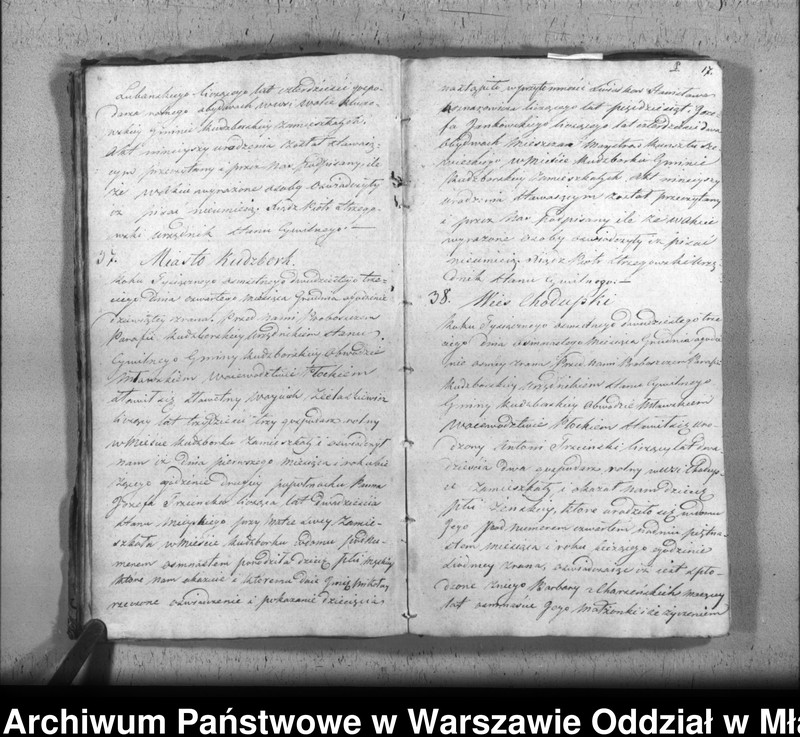 Lubanskiego liczącego lat czterdzieści gospo-
darza rolnego obydwóch we wsi
Gminie Kudzborskiey zamieszkałych.
Akt ninieyszy urodzenia został stawaią-
cym przeczytany i przez Nas podpisany, ile
że w akcie wyrażone osoby oświadczyły
iż pisać nieumieią. Xiądz Piotr Strzego-
wski Urzędnik Stanu Cywilnego.
37. Miasto Kudzbork.
Roku Tysiącznego osmsetnego dwudziestego trze-
ciego dnia czwartego Miesiąca Grudnia o godzinie
dziewiątey zrana. Przed Nami Proboszczem
Parafii Kudzborskiey Urzędnikiem Stanu
Cywilnego Gminy Kudzborskiey Obwodzie
Mławskiem Woiewództwie Płockiem
stawił się sławetny Woyciech
liczący lat trzydzieści trzy gospodarz rolny
w Mieście Kudzborku zamieszkały i oświadczył
nam iż dnia pierwszego miesiąca i roku bie-
żącego o godzinie drugiey popołudniu Panna
Józefa Trzcinska licząca lat dwadzieścia
stanu przy Matce swey zamie-
szkała w Mieście Kudzborku w domu pod nu-
merem osmnastem porodziła dziecię płci męskiey
które nam okazuie i któremu daie Imię Mikołay
rzeczone oświadczenie i pokazanie dziecięcia
17.
nastąpiło w przytomności świadków Stanisława
liczącego lat pięćdziesiąt, Joze-
fa Jankowskiego liczącego lat czterdzieści dwa
obydwóch Mieszczan Maystrów Kunsztu sze-
wieckiego w Mieście Kudzborku Gminie
Kudzborskiey zamieszkałych. Akt ninieyszy
urodzenia stawaiącym został przeczytany
i przez Nas podpisany ile że w akcie
wyrażone osoby oświadczyły iż pisać
nieumieią. Xiądz Piotr Strzegowski Urzę-
dnik Stanu Cywilnego.
38. Wieś Chodupki
Roku Tysiącznego osmsetnego dwudziestego trze-
ciego dnia osmnastego Miesiąca Grudnia o godzi-
nie osmey zrana. Przed Nami Proboszczem Parafii
Kudzborskiey Urzędnikiem Stanu Cywilnego
Gminy Kudzborskiey Obwodzie Mławskiem
Woiewództwie Płockiem stawił się uro-
dzony Antoni Trzcinski liczący lat dwa-
dzieścia dwa gospodarz rolny we wsi Chodup-
ce zamieszkały i okazał nam dziecię
płci żenskiey, które urodziło się w domu
Jego pod numerem czwartem na dniu piętna-
stem miesiąca i roku bieżącego o godzinie
siodmey zrana, oświadczaiąc iż iest spło-
dzone z niego i Barbary z Charzenskich maiącey
lat osmnaście Jego Małżonki i że życzeniem
Archiwum Państwowe w Warszawie Oddział w Mła